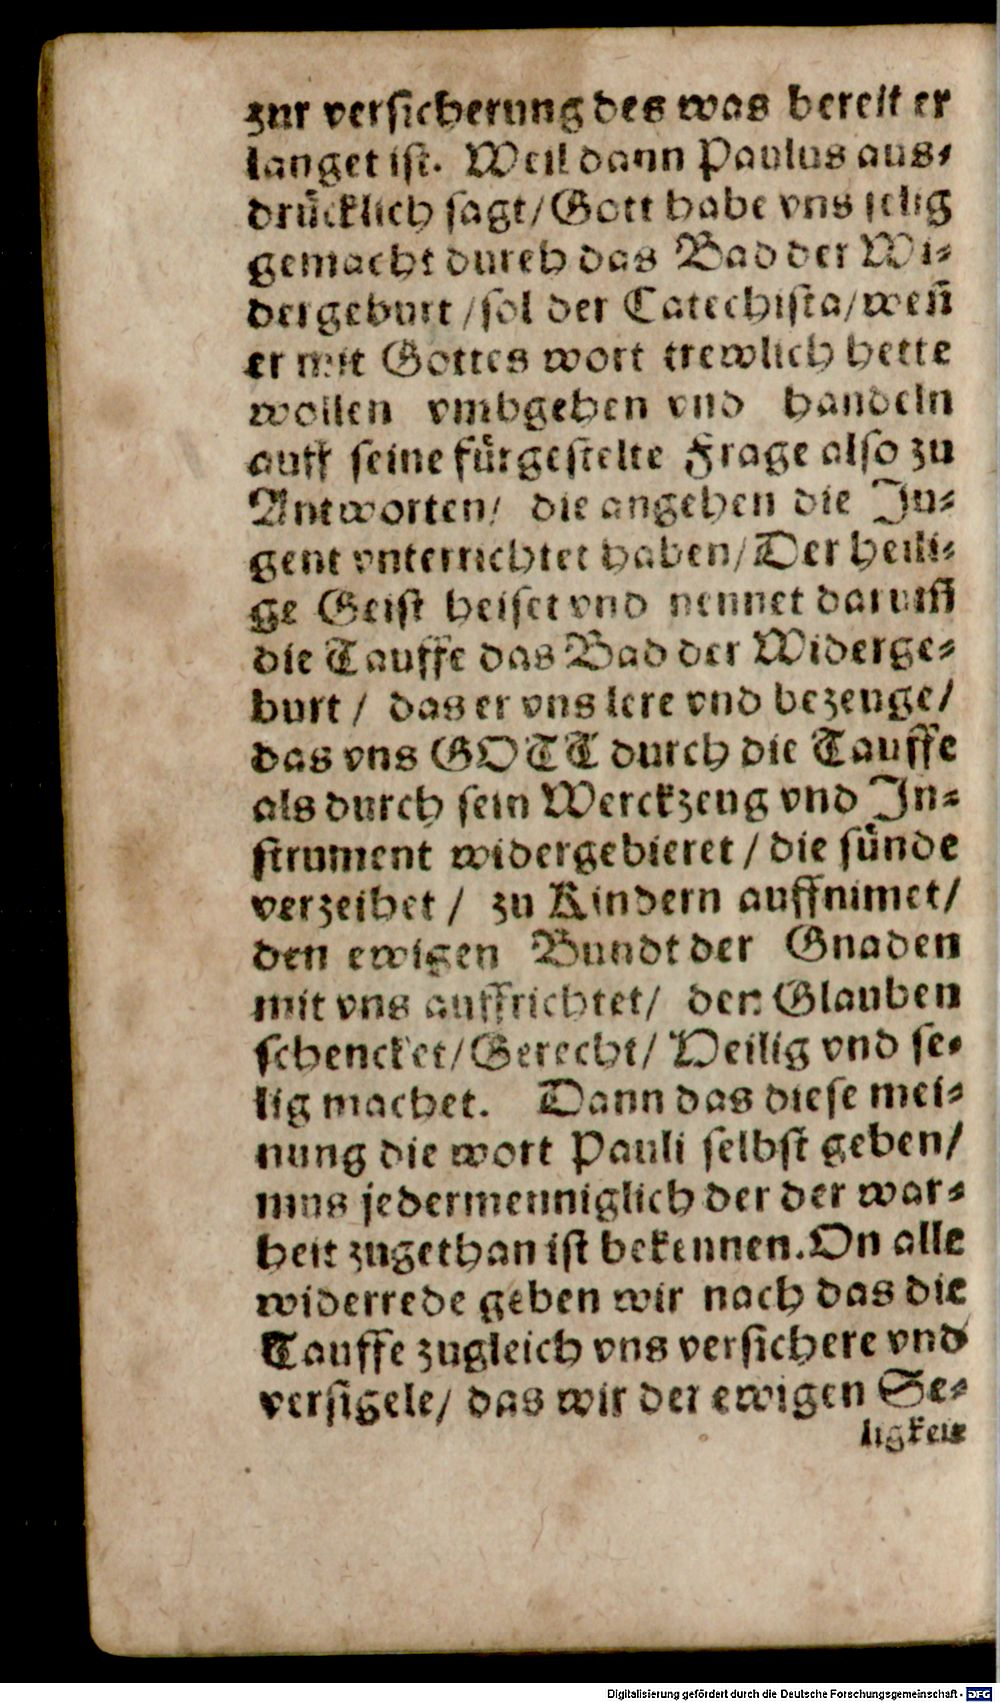 zur versicherung des was bereit er
langet ist. Weil dann Paulus aus⸗
drücklich sagt/Gott habe vns selig
gemacht durch das Bad der Wi⸗
dergeburt/sol der Catechista/weñ
er mit Gottes wort trewlich hette
wollen vmbgehen vnd handeln
auff seine fürgestelte Frage also zu
Antworten/ die angehen die Ju⸗
gent vnterrichtet haben/Der heili⸗
ge Geist heiset vnd nennet darum̃
die Tauffe das Bad der Widerge⸗
burt/ das er vns lere vnd bezeuge/
das vns GOTT durch die Tauffe
als durch sein Werckzeug vnd In⸗
strument widergebieret/die sünde
verzeihet/ zu Kindern auffnimet/
den ewigen Bundt der Gnaden
mit vns auffrichtet/ den Glauben
schencket/Gerecht/Heilig vnd se⸗
lig machet. Dann das diese mei⸗
nung die wort Pauli selbst geben/
mus jedermenniglich der der war⸗
heit zugethan ist bekennen.On alle
widerrede geben wir nach das die
Tauffe zugleich vns versichere vnd
versigele/ das wir der ewigen Se⸗
ligkeit
Digitalisierung gefördert durch die Deutsche Forschungsgemeinschaft - DFG